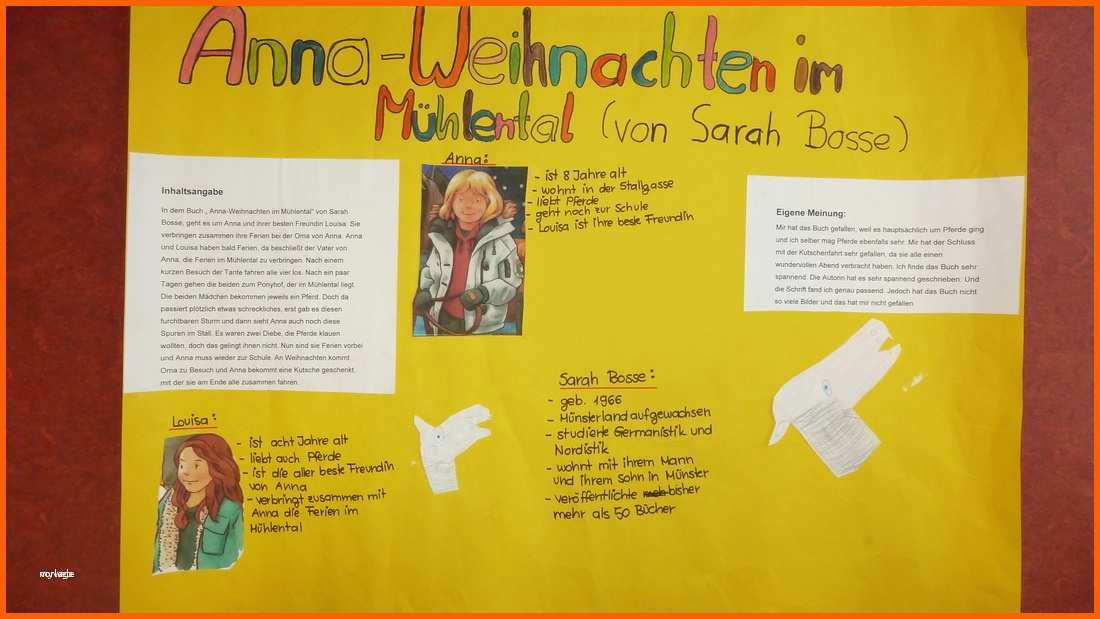 Anna-Weihnachten im
Mühlental (von Sarah Bosse)
Inhaltsangabe
In dem Buch „ Anna-Weihnachten im Mühlental“ von Sarah
Bosse, geht es um Anna und ihrer besten Freundin Louisa. Sie
verbringen zusammen ihre Ferien bei der Oma von Anna. Anna
und Louisa haben bald Ferien, da beschließt der Vater von
Anna, die Ferien im Mühlental zu verbringen. Nach einem
kurzen Besuch der Tante fahren alle vier los. Nach ein paar
Tagen gehen die beiden zum Ponyhof, der im Mühlental liegt.
Die beiden Mädchen bekommen jeweils ein Pferd. Doch da
passiert plötzlich etwas schreckliches, erst gab es diesen
furchtbaren Sturm und dann sieht Anna auch noch diese
Spuren im Stall. Es waren zwei Diebe, die Pferde klauen
wollten, doch das gelingt ihnen nicht. Nun sind sie Ferien vorbei
und Anna muss wieder zur Schule. An Weihnachten kommt
Oma zu Besuch und Anna bekommt eine Kutsche geschenkt,
mit der sie am Ende alle zusammen fahren.
Anna:
- ist 8 Jahre alt
- wohnt in der Stallgasse
- liebt Pferde
- geht noch zur Schule
- Louisa ist ihre beste Freundin
Eigene Meinung:
Mir hat das Buch gefallen, weil es hauptsächlich um Pferde ging
und ich selber mag Pferde ebenfalls sehr. Mir hat der Schluss
mit der Kutschenfahrt sehr gefallen, da sie alle einen
wundervollen Abend verbracht haben. Ich finde das Buch sehr
spannend. Die Autorin hat es sehr spannend geschrieben. Und
die Schrift fand ich genau passend. Jedoch hat das Buch nicht
so viele Bilder und das hat mir nicht gefallen
Louisa:
- ist acht Jahre alt
- liebt auch Pferde
- ist die aller beste Freundin
von Anna
- verbringt zusammen mit
Anna die Ferien im
Mühlental
Sarah Bosse:
- geb. 1966
- Münsterland aufgewachsen
- studierte Germanistik und
Nordistik
- wohnt mit ihrem Mann
und ihrem Sohn in Münster
- veröffentlichte bisher
mehr als 50 Bücher